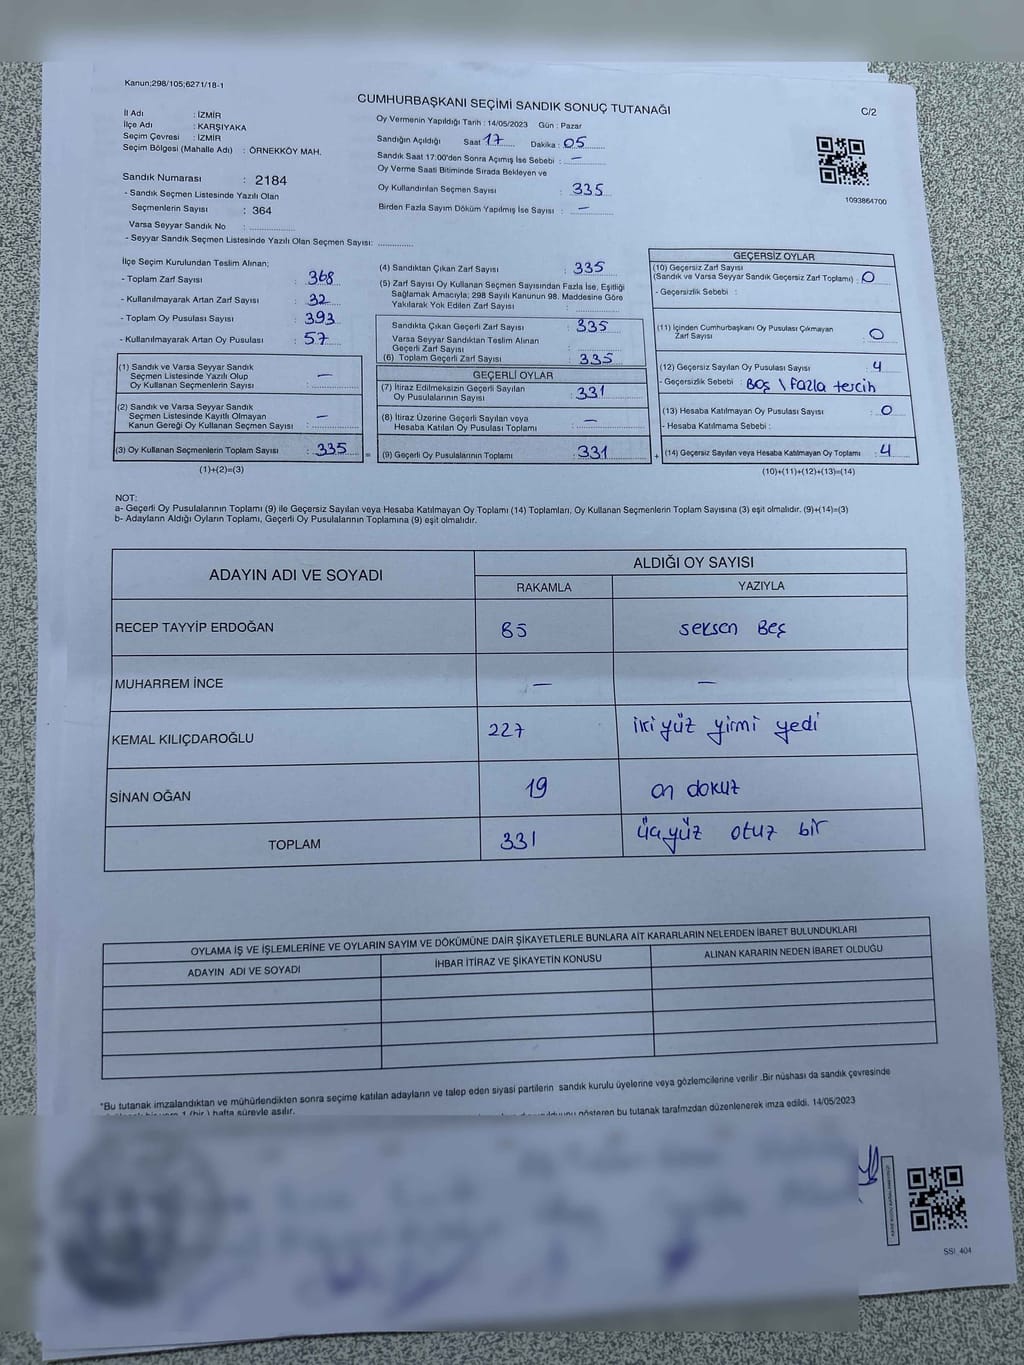 Kanun;298/105;6271/18-1
CUMHURBAŞKANI SEÇİMİ SANDIK SONUÇ TUTANAĞI
C/2
İl Adı : İZMİR
İlçe Adı : KARŞIYAKA
Seçim Çevresi : İZMİR
Seçim Bölgesi (Mahalle Adı) : ÖRNEKKÖY MAH.
Sandık Numarası : 2184
- Sandık Seçmen Listesinde Yazılı Olan
Seçmenlerin Sayısı : 364
Varsa Seyyar Sandık No :
- Seyyar Sandık Seçmen Listesinde Yazılı Olan Seçmen Sayısı:
Oy Vermenin Yapıldığı Tarih : 14/05/2023 Gün : Pazar
Sandığın Açıldığı Saat 17 Dakika : 05
Sandık Saat 17.00'den Sonra Açımış İse Sebebi : —
Oy Verme Saati Bitiminde Sırada Bekleyen ve
Oy Kullandırılan Seçmen Sayısı : 335
Birden Fazla Sayım Döküm Yapılmış İse Sayısı : —
1093864700
İlçe Seçim Kurulundan Teslim Alınan;
- Toplam Zarf Sayısı : 368
- Kullanılmayarak Artan Zarf Sayısı : 32
- Toplam Oy Pusulası Sayısı : 393
- Kullanılmayarak Artan Oy Pusulası : 57
(1) Sandık ve Varsa Seyyar Sandık
Seçmen Listesinde Yazılı Olup
Oy Kullanan Seçmenlerin Sayısı : —
(2) Sandık ve Varsa Seyyar Sandık
Seçmen Listesinde Kayıtlı Olmayan
Kanun Gereği Oy Kullanan Seçmen Sayısı : —
(3) Oy Kullanan Seçmenlerin Toplam Sayısı : 335
(1)+(2)=(3)
(4) Sandıktan Çıkan Zarf Sayısı : 335
(5) Zarf Sayısı Oy Kullanan Seçmen Sayısından Fazla İse, Eşitliği
Sağlamak Amacıyla; 298 Sayılı Kanunun 98. Maddesine Göre
Yakılarak Yok Edilen Zarf Sayısı :
Sandıkta Çıkan Geçerli Zarf Sayısı : 335
Varsa Seyyar Sandıktan Teslim Alınan
Geçerli Zarf Sayısı :
(6) Toplam Geçerli Zarf Sayısı : 335
GEÇERLİ OYLAR
(7) İtiraz Edilmeksizin Geçerli Sayılan
Oy Pusulalarının Sayısı : 331
(8) İtiraz Üzerine Geçerli Sayılan veya
Hesaba Katılan Oy Pusulası Toplamı : —
= (9) Geçerli Oy Pusulalarının Toplamı : 331
GEÇERSİZ OYLAR
(10) Geçersiz Zarf Sayısı
(Sandık ve Varsa Seyyar Sandık Geçersiz Zarf Toplamı) : 0
- Geçersizlik Sebebi :
(11) İçinden Cumhurbaşkanı Oy Pusulası Çıkmayan
Zarf Sayısı : 0
(12) Geçersiz Sayılan Oy Pusulası Sayısı : 4
- Geçersizlik Sebebi : Boş \ fazla tercih
(13) Hesaba Katılmayan Oy Pusulası Sayısı : 0
- Hesaba Katılmama Sebebi :
+ (14) Geçersiz Sayılan veya Hesaba Katılmayan Oy Toplamı : 4
(10)+(11)+(12)+(13)=(14)
NOT:
a- Geçerli Oy Pusulalarının Toplamı (9) ile Geçersiz Sayılan veya Hesaba Katılmayan Oy Toplamı (14) Toplamları, Oy Kullanan Seçmenlerin Toplam Sayısına (3) eşit olmalıdır. (9)+(14)=(3)
b- Adayların Aldığı Oyların Toplamı, Geçerli Oy Pusulalarının Toplamına (9) eşit olmalıdır.
ADAYIN ADI VE SOYADI
ALDIĞI OY SAYISI
RAKAMLA YAZIYLA
RECEP TAYYİP ERDOĞAN 85 seksen Beş
MUHARREM İNCE — —
KEMAL KILIÇDAROĞLU 227 iki yüz yirmi yedi
SİNAN OĞAN 19 on dokuz
TOPLAM 331 üç yüz otuz bir
OYLAMA İŞ VE İŞLEMLERİNE VE OYLARIN SAYIM VE DÖKÜMÜNE DAİR ŞİKAYETLERLE BUNLARA AİT KARARLARIN NELERDEN İBARET BULUNDUKLARI
ADAYIN ADI VE SOYADI İHBAR İTİRAZ VE ŞİKAYETİN KONUSU ALINAN KARARIN NEDEN İBARET OLDUĞU
*Bu tutanak imzalandıktan ve mühürlendikten sonra seçime katılan adayların ve talep eden siyasi partilerin sandık kurulu üyelerine veya gözlemcilerine verilir .Bir nüshası da sandık çevresinde
bir yere 1 (bir ) hafta süreyle asılır.
gösteren bu tutanak tarafımızdan düzenlenerek imza edildi. 14/05/2023
SSİ_404